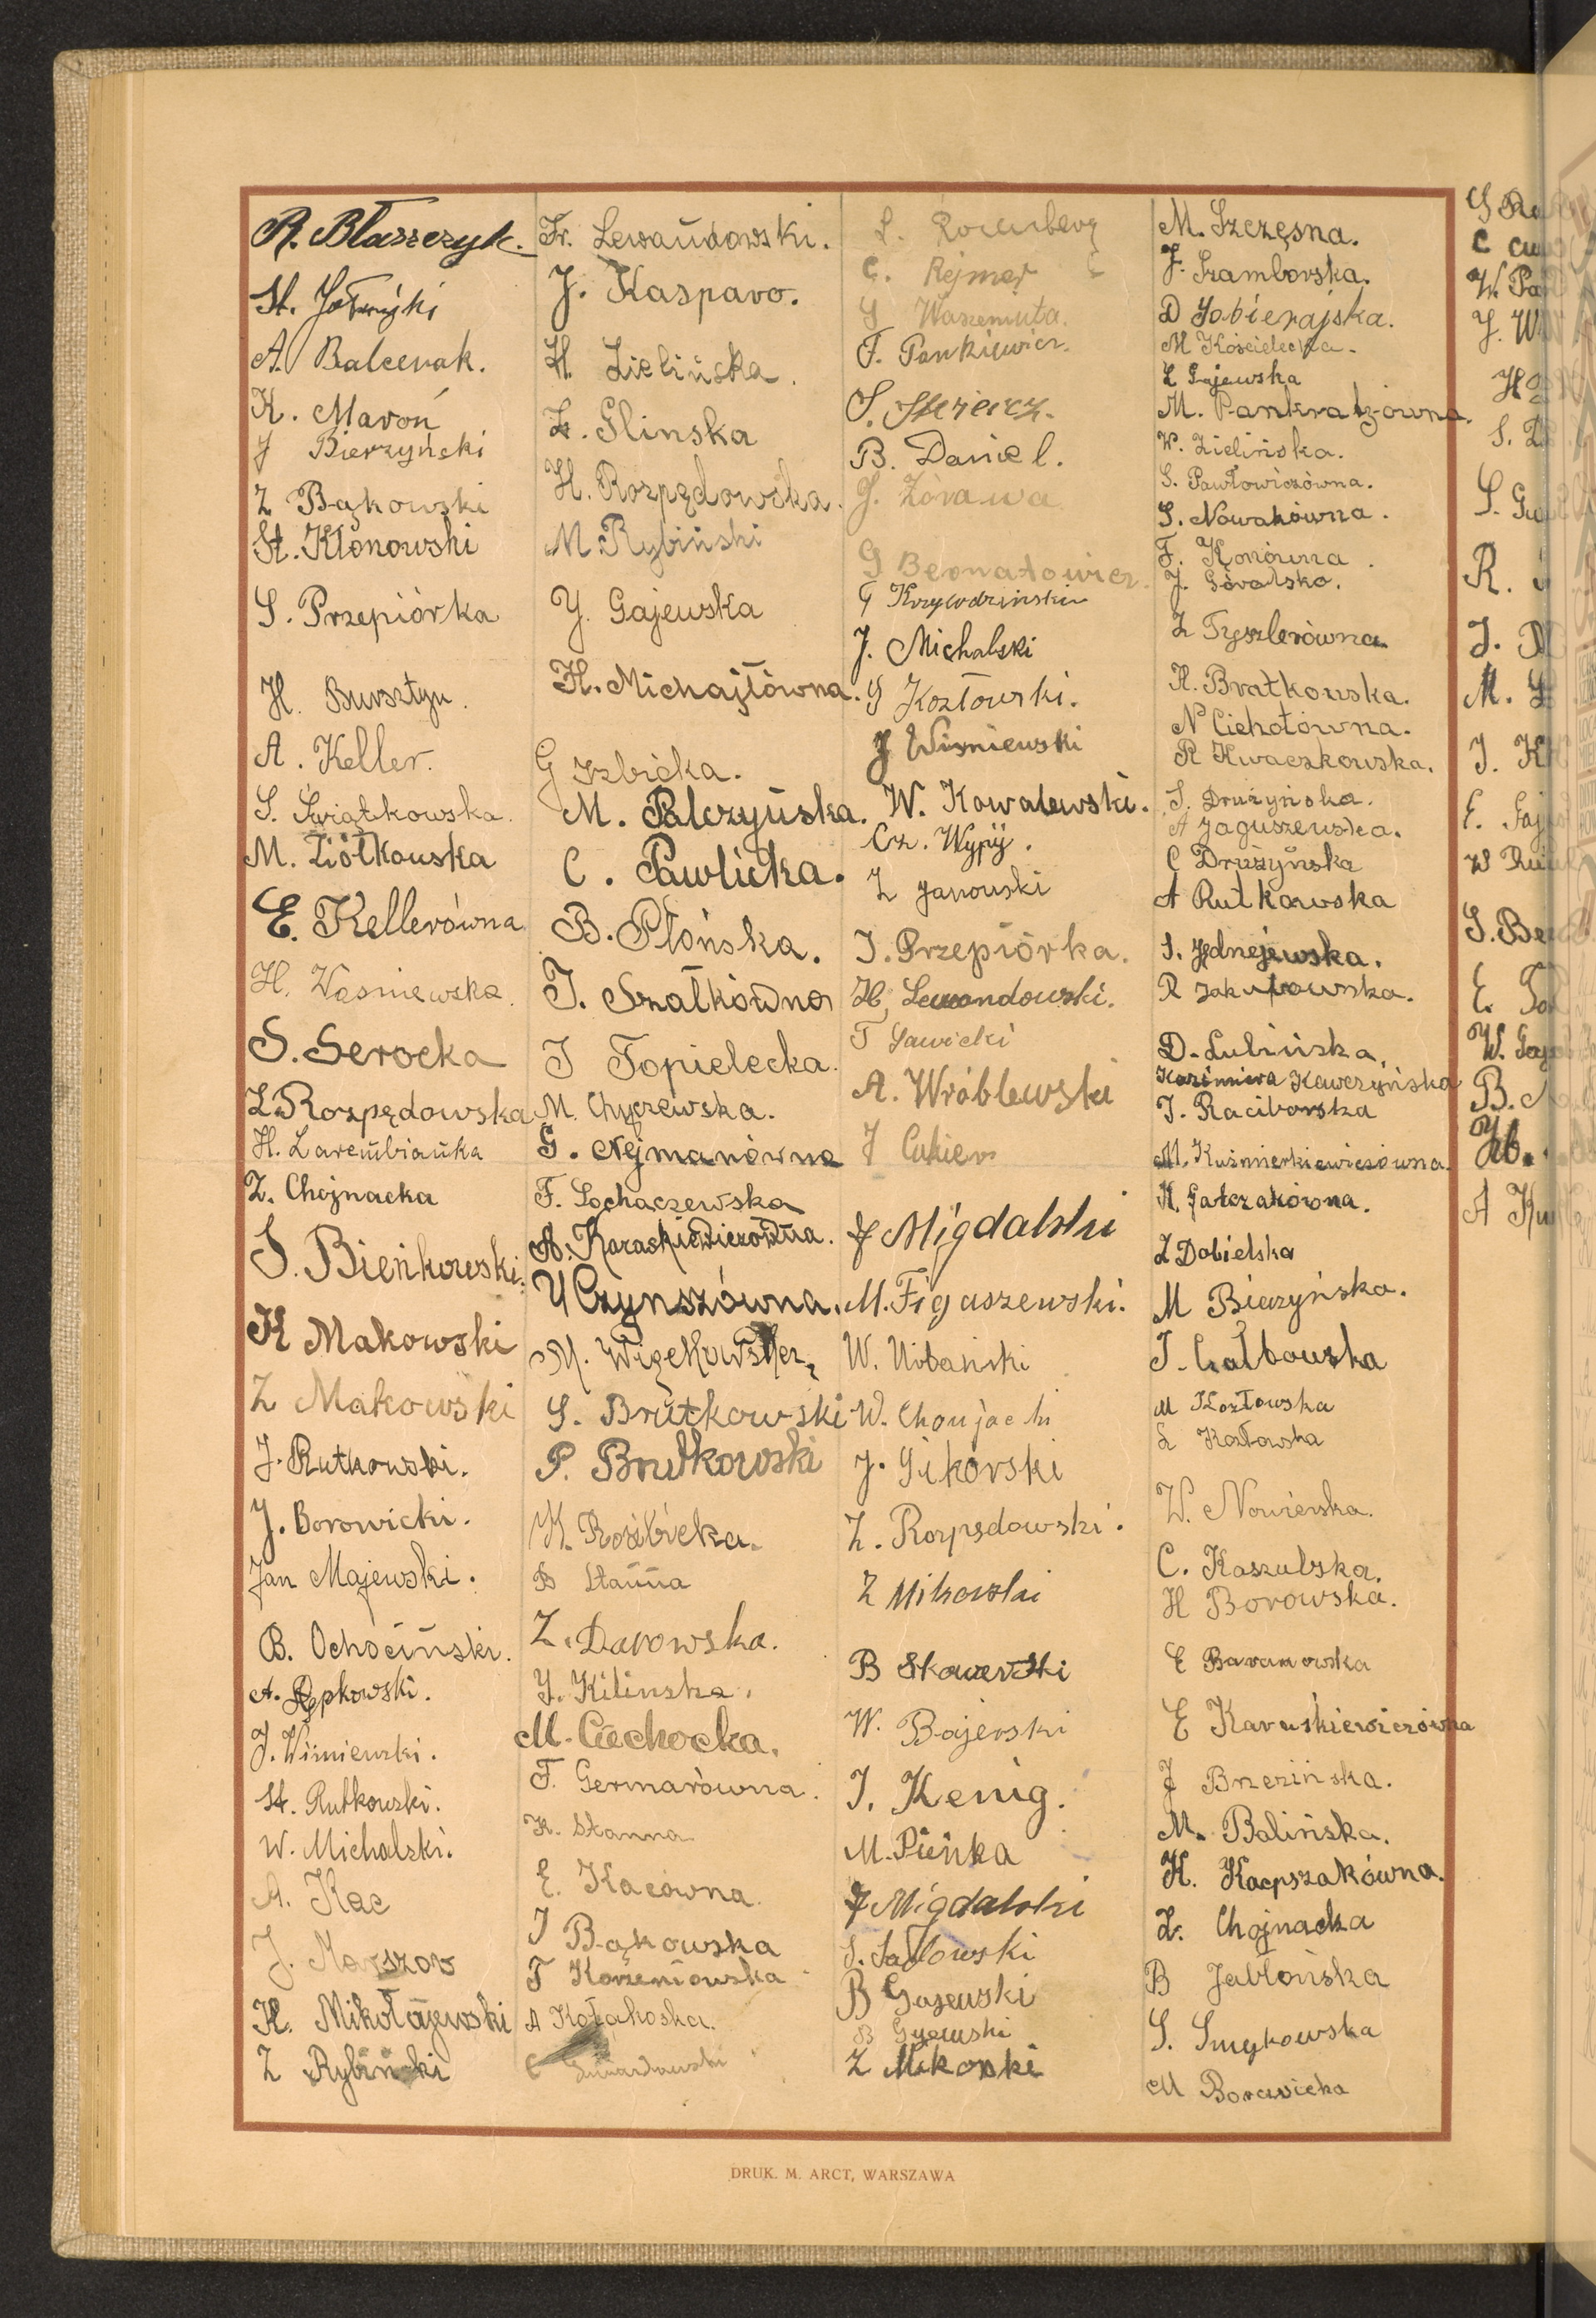 R. Błaszczyk.
St.
A. Balcerak.
K. Maroń
J Bierzyński
Z Bąkowski
St. Kłonowski
S. Przepiórka
H. Bursztyn.
A. Keller.
S. Świątkowska.
M. Ziółkowska
E. Kellerówna
H. Waśniewska.
S. Serocka
Z. Rozpędowska
H. Zarembianka
Z. Chojnacka
S. Bieńkowski.
K Makowski
Z Makowski
J. Rutkowski.
J. Borowicki.
Jan Majewski.
B. Ochociński.
A. Rępkowski.
J. Wiśniewski.
St. Rutkowski.
W. Michalski.
A. Kac
J. Marszov
K. Mikołajewski
Z Rybiński
Fr. Lewandowski.
J. Kasparo.
H. Zielińska.
Z. Glinska
H. Rozpędowska.
M. Rybiński
J. Gajewska
H. Michajłówna.
G Izbicka.
M. Palczyńska.
C. Pawlicka.
B. Płońska.
J. Szatkówna
J Topielecka.
M. Chyczewska.
G. Nejmanówna
F. Sochaczewska
A. Karaśkiewiczówna.
Czynszówna.
M. Więckowska
S. Brutkowski
P. Brutkowski
K. Rozbicka.
B Stanna
Z. Darowska.
J. Kilinska.
M. Ciechocka.
F. Germanówna.
K. Stanna
E. Kacówna.
J Bąkowska
T Korzeniowska
A Kołakoska.
L. Rozenberg
C. Rejmer
S Waszemuta.
F. Pankiewicz.
S.
B. Daniel.
J. Żórawa
G Bernatowicz.
G Krzywdzinski
J. Michalski
S Kozłowski.
J Wiśniewski
W. Kowalewski.
Cz. Wypij.
Z Janowski
J. Przepiórka.
H. Lewandowski.
T Sawicki
A. Wróblewski
J Cukier
J Migdalski
M. Figaszewski.
W. Urbański
W. Choujacki
J. Sikorski
Z. Rozpędowski.
Z Mikowski
B Skowerski
W. Bajerski
J. Kenig.
M. Pieńka
J Migdalski
S. Sadłowski
B Gajewski
B Gajewski
Z Mikoski
M. Szczęsna.
J. Szamborska.
D Sobierajska.
M Kościelecka.
Z Gajewska
M. Pankratzówna.
W. Zielińska.
S. Pawłowiczówna.
S. Nowakówna.
F. Konówna.
J. Góralska.
Z Tyszlerówna
K. Bratkowska.
N Cichotówna.
R Kwaczkowska.
S. Drużyńska.
A Jaguszewska.
C Drużyńska
A Rutkowska
S. Jędrzejewska.
R Jakubowska.
D. Lubińska.
Kazimiera Kawczyńska
J. Raciborska
M. Kuśmierkiewiczówna.
K. Gałczakówna.
Z Dobielska
M Bierzyńska.
J. Gołbowska
M Kozłowska
L Kozłowska
W. Nowierska.
C. Kaszubska.
H Borowska.
E Baranowska
E Karaśkiewiczówna
J Brzezińska.
M. Balińska.
K. Kacpszakówna.
Z. Chojnacka
B Jabłońska
S. Smykowska
M Borowicka
DRUK. M. ARCT, WARSZAWA